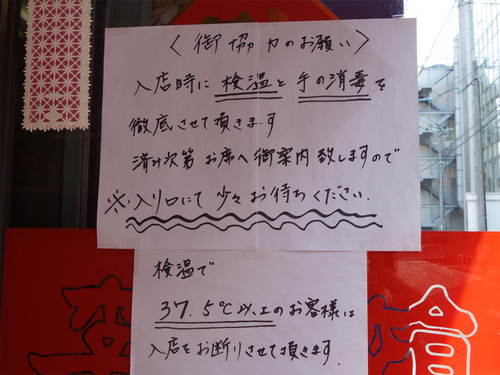 〈御協力のお願い〉
入店時に検温と手の消毒を
徹底させて頂きます
済み次第お席へ御案内致しますので
※入り口にて少々お待ちください.
検温で
37.5℃以上のお客様は
入店をお断りさせて頂きます.